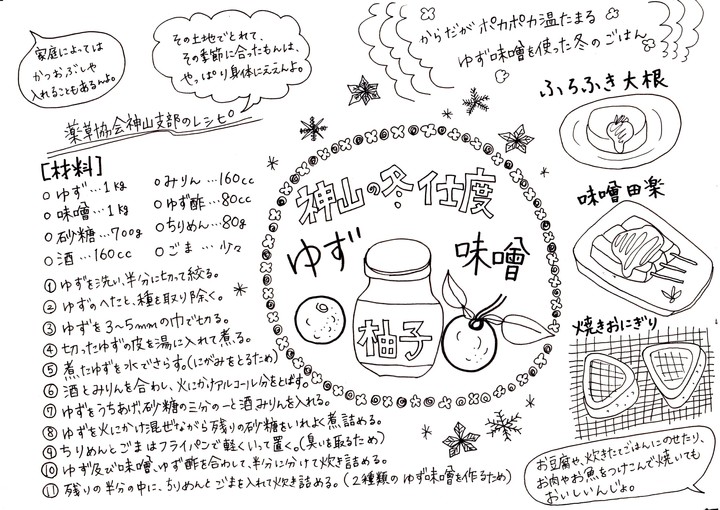 家庭によっては
かつおぶしや
入れることもあるんよ。
その土地でとれて、
その季節に合ったもんは、
やっぱり身体にええんよ。
からだがポカポカ温たまる
ゆず味噌を使った冬のごはん
薬草協会神山支部のレシピ
[材料]
○ゆず…1kg
○味噌…1kg
○砂糖…700g
○酒…160cc
○みりん…160cc
○ゆず酢…80cc
○ちりめん…80g
○ごま…少々
①ゆずを洗い、半分に切って絞る。
②ゆずのへたと、種を取り除く。
③ゆずを3~5mmの巾で切る。
④切ったゆずの皮を湯に入れて煮る。
⑤煮たゆずを水でさらす。(にがみをとるため)
⑥酒とみりんを合わし、火にかけアルコール分をとばす。
⑦ゆずをうちあげ、砂糖の三分の一と酒みりんを入れる。
⑧ゆずを火にかけ混ぜながら残りの砂糖をいれよく煮詰める。
⑨ちりめんとごまはフライパンで軽くいって置く。(臭いを取るため)
⑩ゆず及び味噌、ゆず酢を合わして、半分に分けて炊き詰める。
⑪残りの半分の中に、ちりめんとごまを入れて炊き詰める。(2種類のゆず味噌を作るため)
神山の冬仕度
ゆず 味噌
柚子
ふろふき大根
味噌田楽
焼きおにぎり
お豆腐や、炊きたてごはんにのせたり、
お肉やお魚をつけこんで焼いても
おいしいんじょ。